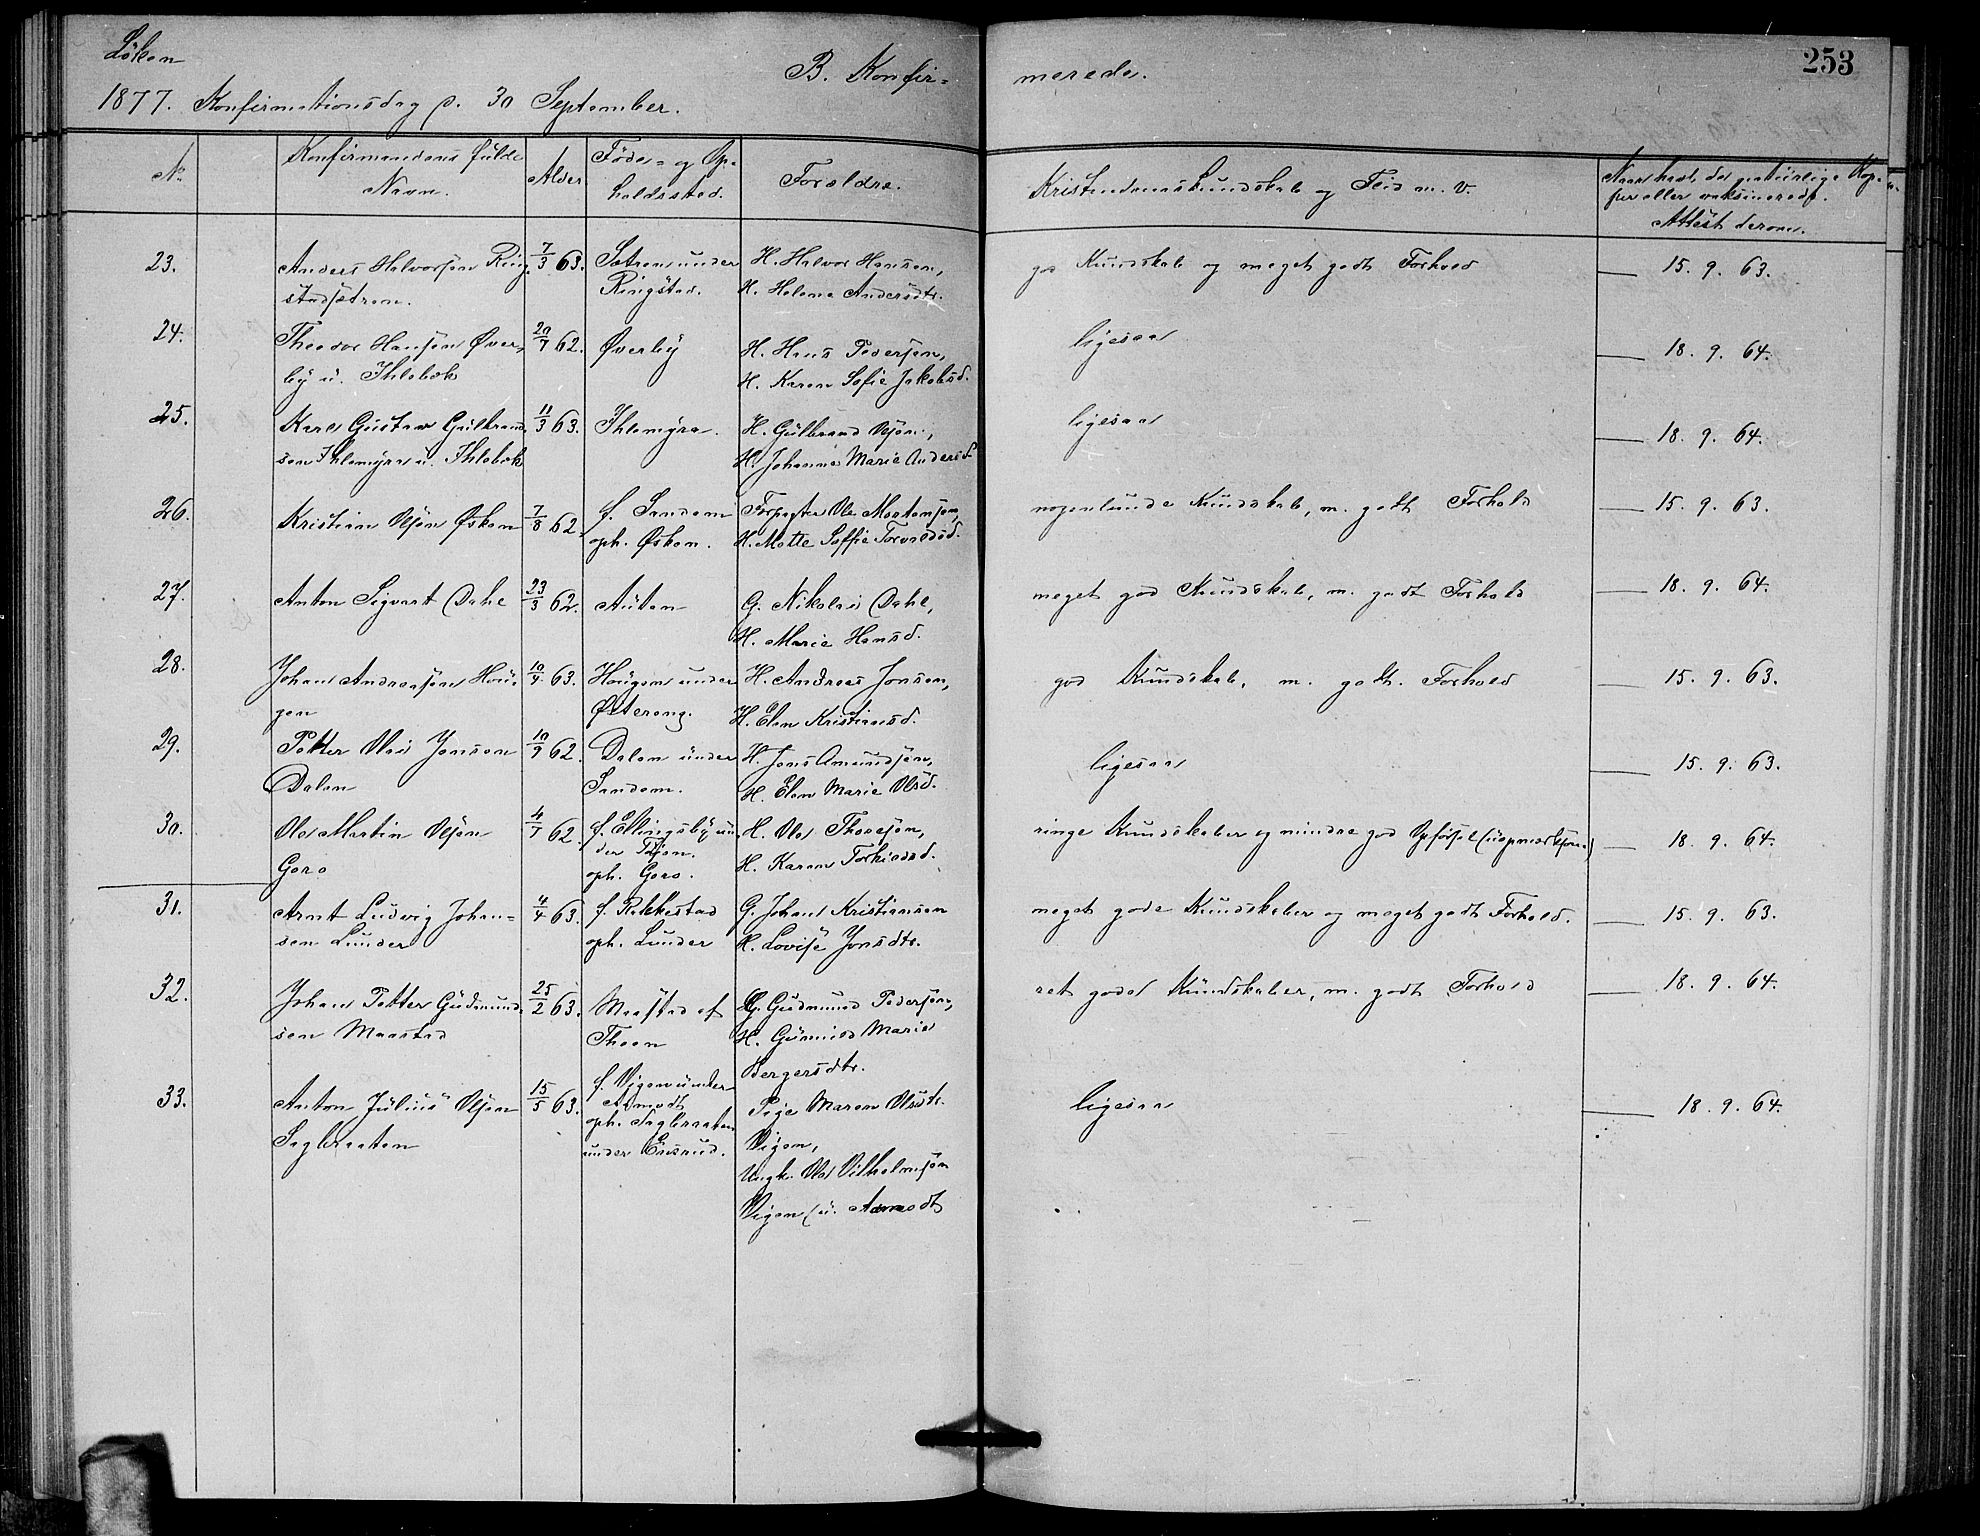 Löken
B. Konfir=
merede.
253
1877. Konfirmationsdag d. 30 September.
No
Konfirmandens fulde
Navn.
Alder
Føde= og Op=
holdssted.
Forældre.
Kristendomskundskab og Flid m. v.
Naar havt de natürlige Kop=
per eller vaksinerede.
Attest derom.
23.
Anders Halvorsen Ring
stadsætren.
7/3 63.
Sætren under
Ringstad.
H. Halvor Hansen,
H. Helene Andersdtr.
god Kundskab og meget godt Forhold
— 15. 9. 63.
24.
Theodor Hansen Øver
by u. Ihlebæk
20/7 62.
Øverby
H. Hans Pedersen,
H. Karen Sofie Jakobsd.
ligesaa
— 18. 9. 64.
25.
Karl Gustav Gulbrand
sen Ihlemyra u. Ihlebæk
11/3 63.
Ihlemyra.
H. Gulbrand Olsen,
H. Johanne Marie Andersd.
ligesaa
— 18. 9. 64.
26.
Kristian Olsen Øsken
7/8 62.
f. Sandem
oph. Øsken.
Forpagter Ole Mortensen,
H. Mette Soffie Torvaldsd.
nogenlunde Kundskab, m. godt Forhold
— 15. 9. 63.
27.
Anton Sigvart Dahl
23/3 62.
Auten
G. Nikolai Dahl,
H. Marie Hansd.
meget god Kundskab, m. godt Forhold
— 18. 9. 64.
28.
Johan Andreasen Hou=
gen
10/4 63.
Hougen under
Østereng.
H. Andreas Jonsen,
H. Elen Kristiansd.
god Kundskab, m. godt. Forhold
— 15. 9. 63.
29.
Petter Olai Jensen
Dalen
10/9 62.
Dalen under
Sandem.
H. Jens Amundsen,
H. Elen Marie Olsd.
ligesaa
— 15. 9. 63.
30.
Ole Martin Olsen
Gero
4/7 62.
f. Ellingsby un
der Tøien.
oph. Gero.
H. Ole Thoresen,
H. Karen Torkildsd.
ringe Kundskaber og mindre god Opførsel (uopmærksom)
— 18. 9. 64.
31.
Arnt Ludvig Johan=
sen Lunder
4/4 63.
f. Rakkestad
oph. Lunder
G. Johan Kristiansen
H. Lovise Jonsdtr.
meget gode Kundskaber og meget godt Forhold.
— 15. 9. 63.
32.
Johan Petter Gudmund
sen Maastad
25/2 63.
Maastad af
Theen
G. Gudmund Pedersen,
H. Gunnild Marie
Bergersdtr.
ret gode Kundskaber, m. godt Forhold
— 18. 9. 64.
33.
Anton Julius Olsen
Sagbraaten
15/5 63.
f. Vigen under
Aamodt
oph. Sagbraaten
under Ensrud.
Pige Maren Olsdtr.
Vigen,
Ungk. Ole Vilhelmsen
Vigen (u. Aamodt
ligesaa
— 18. 9. 64.